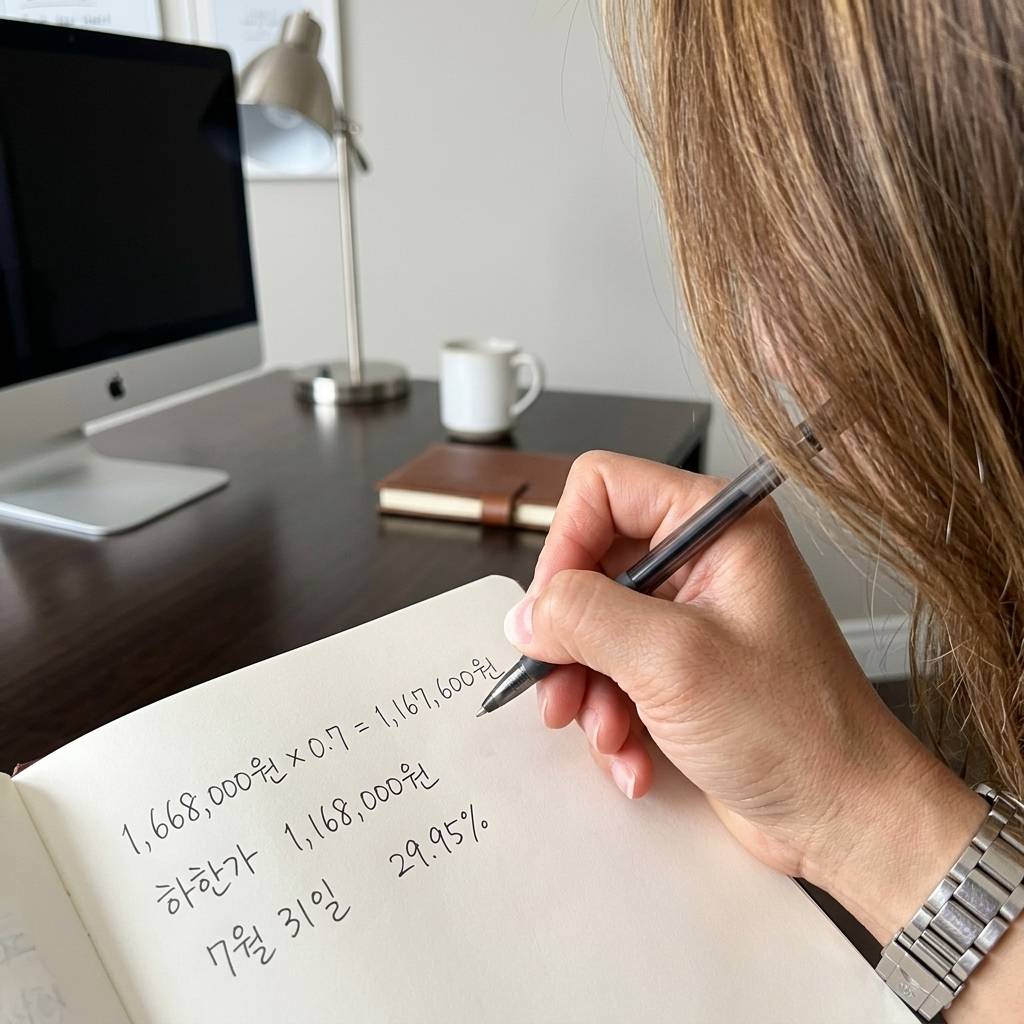 1,668,000원 × 0.7 = 1,167,600원
하한가 1,168,000원
7월 31일 29.95%